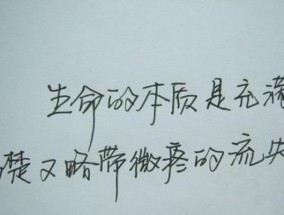 生命的本质是充满
楚又略带微疼的流失